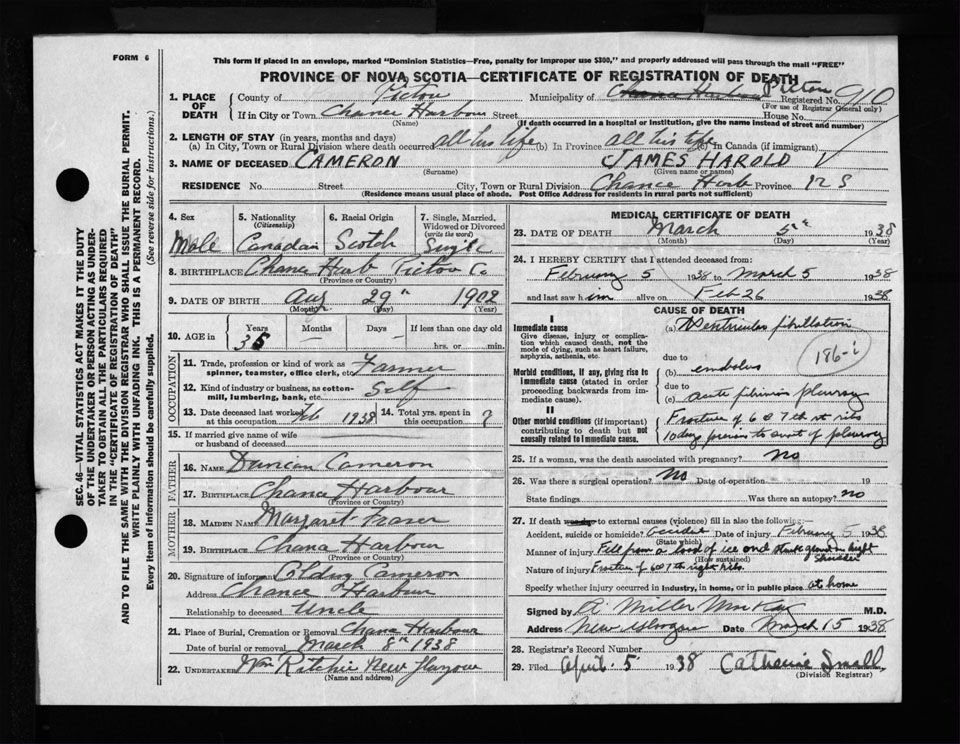 FORM 6
This form if placed in an envelope, marked "Dominion Statistics—Free, penalty for improper use $300," and properly addressed will pass through the mail "FREE"
PROVINCE OF NOVA SCOTIA—CERTIFICATE OF REGISTRATION OF DEATH
1. PLACE OF DEATH
County of Pictou Municipality of Chance Harbour Pictou Registered No. 910
(For use of Registrar General only)
If in City or Town Chance Harbour Street House No.
(Name) (If death occurred in a hospital or institution, give the name instead of street and number)
2. LENGTH OF STAY (in years, months and days)
(a) In City, Town or Rural Division where death occurred all his life (b) In Province all his life (c) In Canada (if immigrant)
3. NAME OF DECEASED CAMERON JAMES HAROLD
(Surname) (Given name or names)
RESIDENCE No. Street City, Town or Rural Division Chance Harb Province N S
(Residence means usual place of abode. Post Office Address for residents in rural parts not sufficient)
SEC. 46—VITAL STATISTICS ACT MAKES IT THE DUTY
OF THE UNDERTAKER OR PERSON ACTING AS UNDER-
TAKER TO OBTAIN ALL THE PARTICULARS REQUIRED
IN THE "CERTIFICATE OF REGISTRATION OF DEATH"
AND TO FILE THE SAME WITH THE DIVISION REGISTRAR WHO SHALL ISSUE THE BURIAL PERMIT.
WRITE PLAINLY WITH UNFADING INK. THIS IS A PERMANENT RECORD.
Every item of information should be carefully supplied. (See reverse side for instructions.)
4. Sex Male
5. Nationality (Citizenship) Canadian
6. Racial Origin Scotch
7. Single, Married, Widowed or Divorced (write the word) Single
8. BIRTHPLACE Chance Harb Pictou Co
(Province or Country)
9. DATE OF BIRTH Aug 29th 1902
(Month) (Day) (Year)
10. AGE in Years 35 Months — Days — If less than one day old hrs. or min.
OCCUPATION
11. Trade, profession or kind of work as spinner, teamster, office clerk, etc. Farmer
12. Kind of industry or business, as cotton-mill, lumbering, bank, etc. Self
13. Date deceased last worked at this occupation Feb 1938 14. Total yrs. spent in this occupation ?
15. If married give name of wife or husband of deceased
FATHER
16. NAME Duncan Cameron
17. BIRTHPLACE Chance Harbour
MOTHER
18. MAIDEN NAME Margaret Fraser
19. BIRTHPLACE Chance Harbour
(Province or Country)
20. Signature of informant Cameron
Address Chance Harbour
Relationship to deceased Uncle
21. Place of Burial, Cremation or Removal Chance Harbour
Date of burial or removal March 8th 1938
22. UNDERTAKER Wm Ritchie New Glasgow
(Name and address)
MEDICAL CERTIFICATE OF DEATH
23. DATE OF DEATH March 5th 1938
(Month) (Day) (Year)
24. I HEREBY CERTIFY that I attended deceased from:
February 5 1938 to March 5 1938
and last saw him alive on Feb 26 1938
CAUSE OF DEATH
I
Immediate cause
Give disease, injury or complication which caused death, not the mode of dying, such as heart failure, asphyxia, asthenia, etc.
(a) Ventricular fibrillation
186-i
Morbid conditions, if any, giving rise to immediate cause (stated in order proceeding backwards from immediate cause).
due to
(b) embolus
due to
(c) acute fibrinous pleurisy
II
Other morbid conditions (if important) contributing to death but not causally related to immediate cause.
Fracture of 6 & 7th rt ribs
10 days previous to onset of pleurisy
25. If a woman, was the death associated with pregnancy? No
26. Was there a surgical operation? No Date of operation 19
State findings Was there an autopsy? no
27. If death was due to external causes (violence) fill in also the following:—
Accident, suicide or homicide? Accident Date of injury February 5 1938
(State which)
Manner of injury Fell from a load of ice and struck ground on right shoulder
(How sustained)
Nature of injury Fracture of 6 & 7th right ribs.
Specify whether injury occurred in industry, in home, or in public place at home
Signed by A Miller McKay M.D.
Address New Glasgow Date March 15 1938
28. Registrar's Record Number
29. Filed April 5 1938 Catherine Small
(Division Registrar)